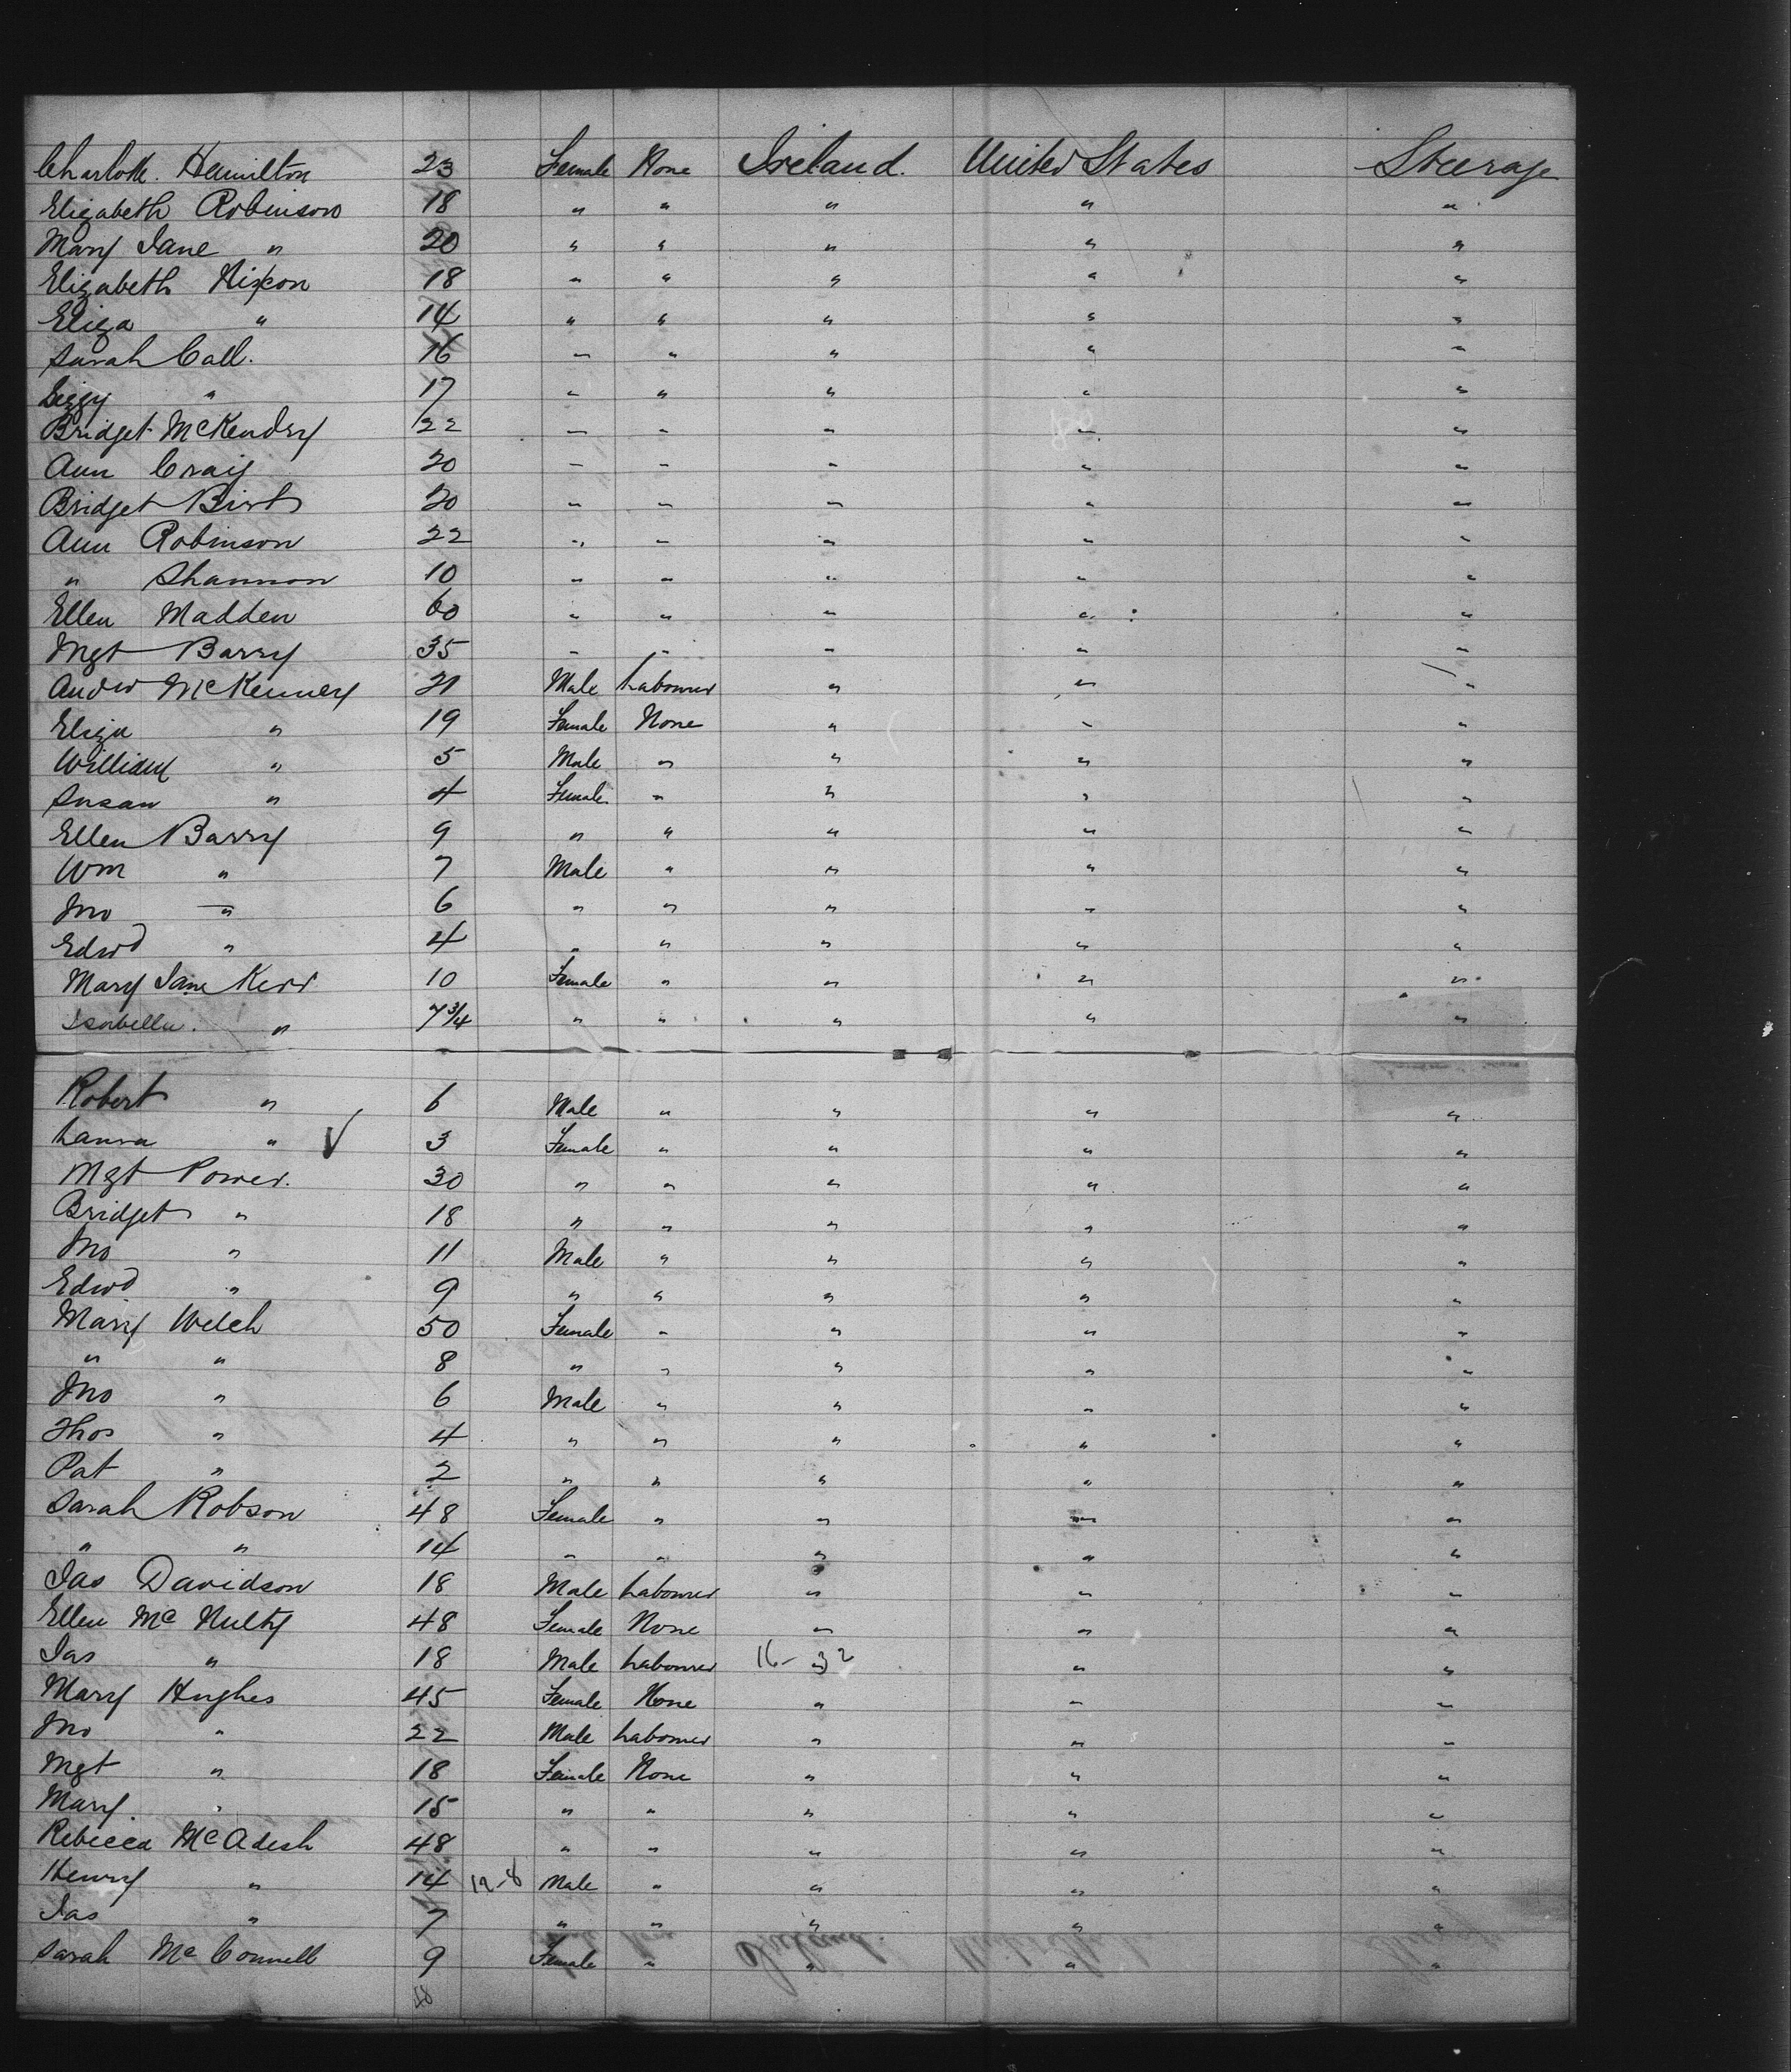 Charlotte Hamilton 23 Female None Ireland. United States Steerage
Elizabeth Robinson 18 " " " " "
Mary Jane " 20 " " " " "
Elizabeth Nixon 18 " " " " "
Eliza " 14 " " " " "
Sarah Call. 16 " " " " "
Lizzy " 17 " " " " "
Bridget McKendry 22 " " " " "
Ann Craig 20 " " " " "
Bridget Birt 20 " " " " "
Ann Robinson 22 " " " " "
" Shannon 10 " " " " "
Ellen Madden 60 " " " " "
Mgt Barry 35 " " " " "
Andw McKenney 21 Male Labourer " " "
Eliza " 19 Female None " " "
William " 5 Male " " " "
Susan " 4 Female " " " "
Ellen Barry 9 " " " " "
Wm " 7 Male " " " "
Jno " 6 " " " " "
Edwd " 4 " " " " "
Mary Jane Kerr 10 Female " " " "
Isabella. " 7 3/4 " " " " "
Robert " 6 Male " " " "
Laura " √ 3 Female " " " "
Mgt Power. 30 " " " " "
Bridget " 18 " " " " "
Jno " 11 Male " " " "
Edwd " 9 " " " " "
Mary Welch 50 Female " " " "
" " 8 " " " " "
Jno " 6 Male " " " "
Thos " 4 " " " " "
Pat " 2 " " " " "
Sarah Robson 48 Female " " " "
" " 14 " " " " "
Jas Davidson 18 Male Labourer " " "
Ellen McNulty 48 Female None " " "
Jas " 18 Male Labourer 16- 32 " "
Mary Hughes 45 Female None " " "
Jno " 22 Male Labourer " " "
Mgt " 18 Female None " " "
Mary " 15 " " " " "
Rebecca McAdesh 48 " " " " "
Henry " 14 12-8 Male " " " "
Jas " 7 " " " " "
Sarah McConnell 9 Female " " " "
48